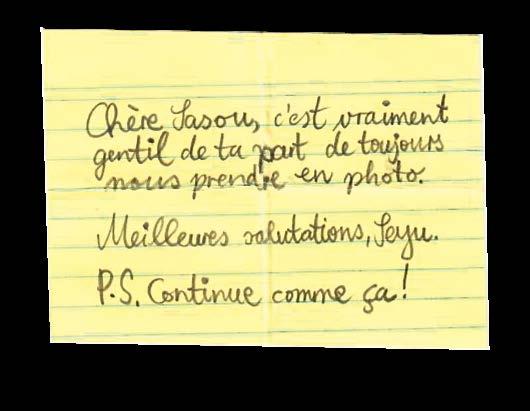 Chère Sasou, c'est vraiment
gentil de ta part de toujours
nous prendre en photo.
Meilleures salutations, Seyu.
P.S. Continue comme ça!